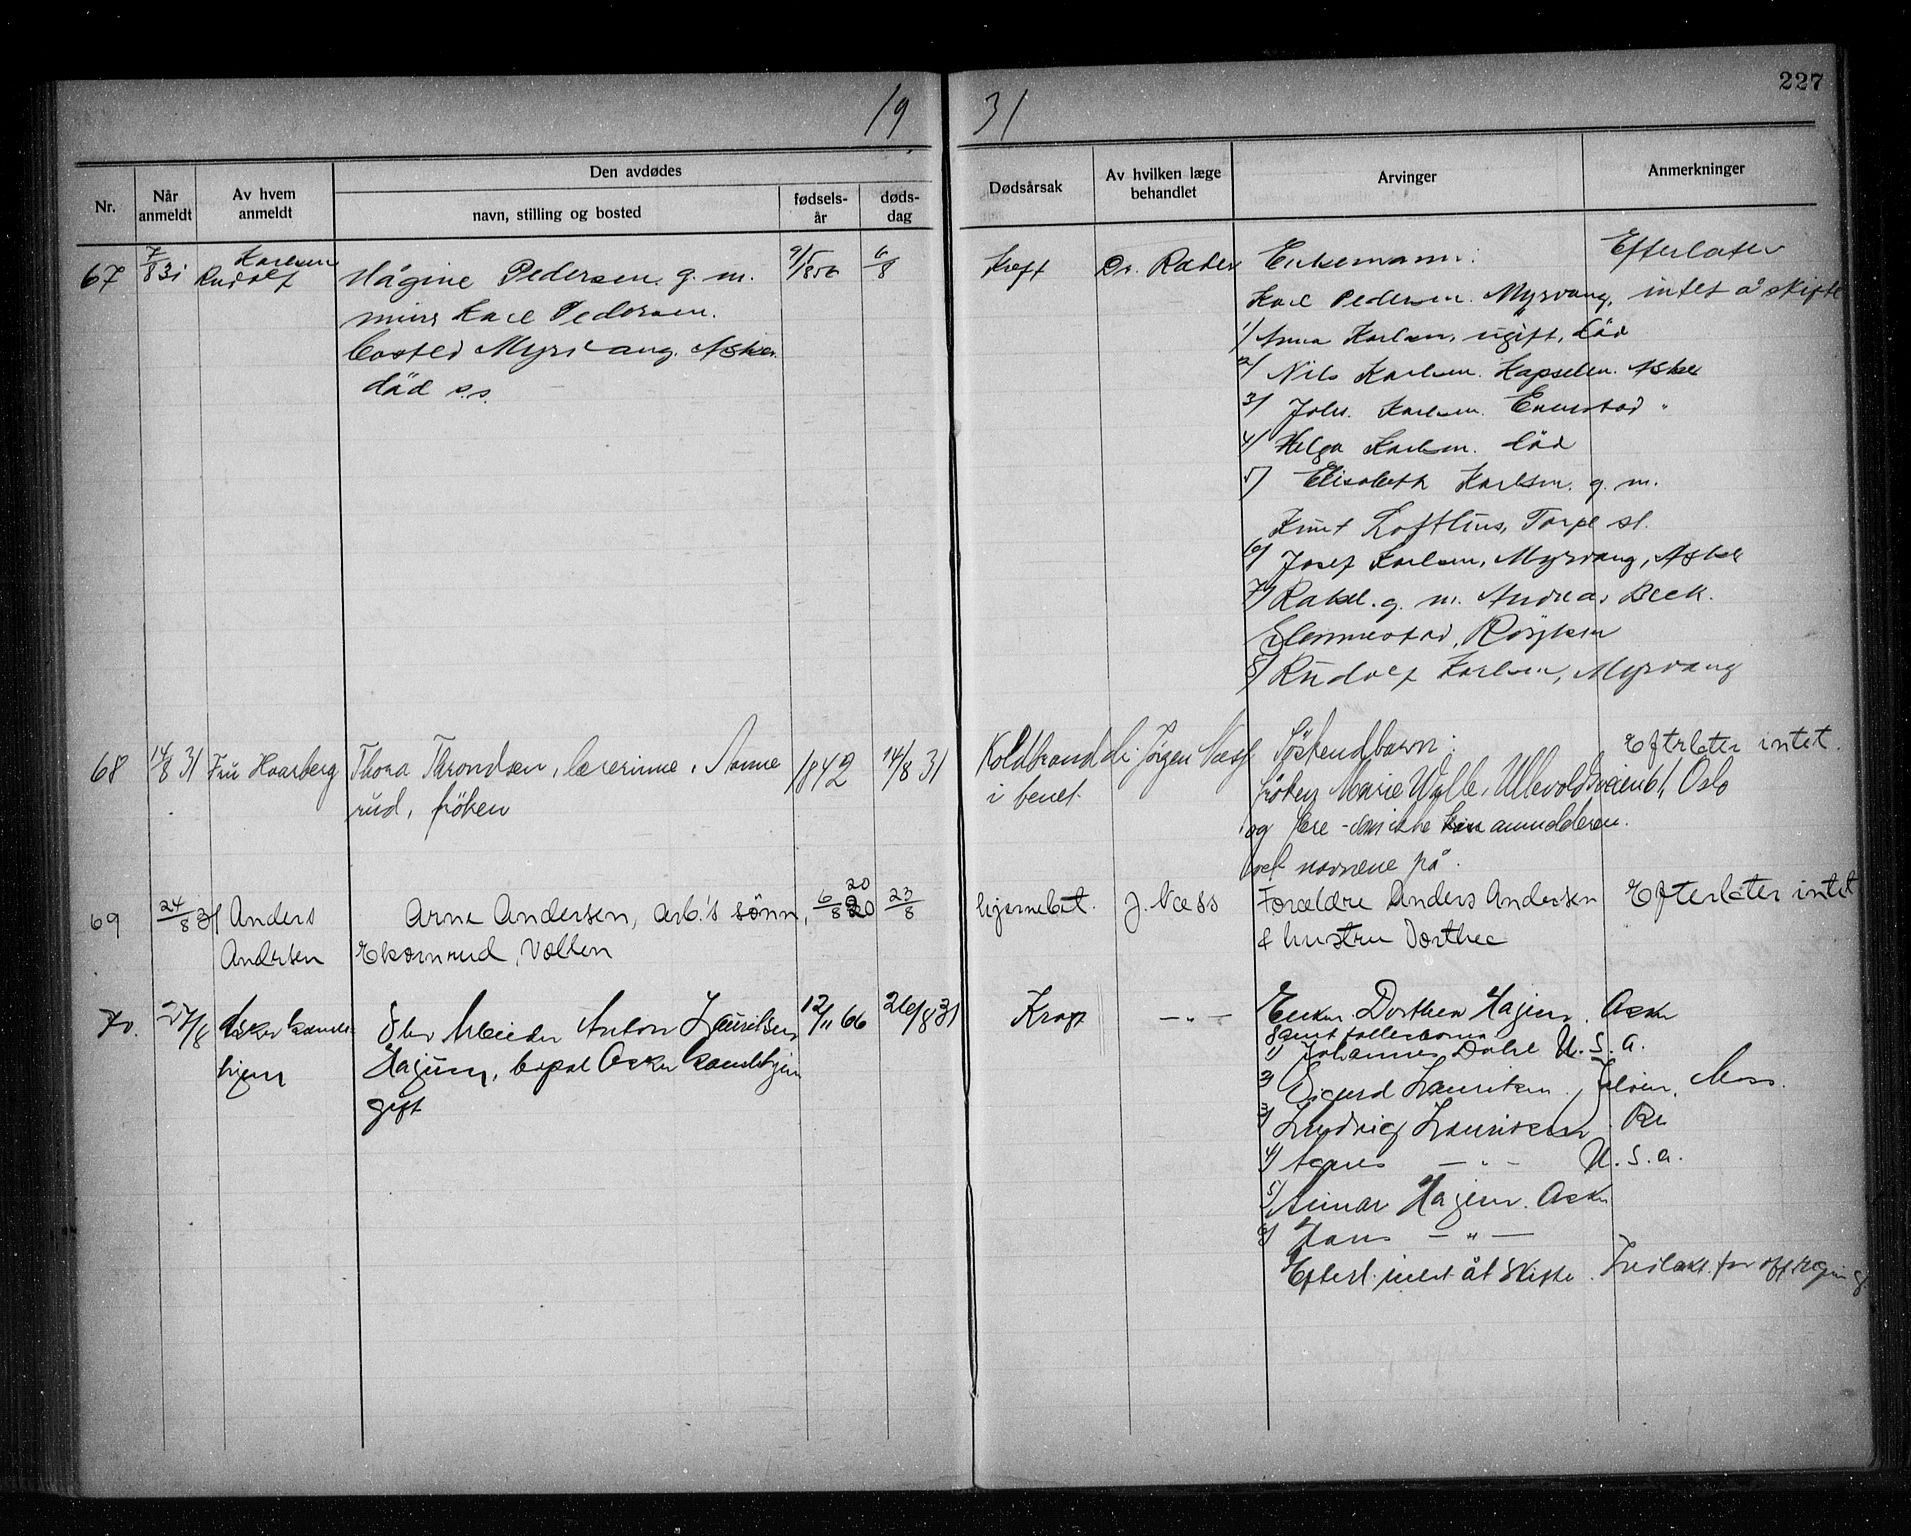 19 31
227
Nr.
Når anmeldt
Av hvem anmeldt
Den avdødes
navn, stilling og bosted
fødselsår
dødsdag
Dødsårsak
Av hvilken læge behandlet
Arvinger
Anmerkninger
67 7/8 31 Karlsen Rudolf
Hågine Pedersen. g. m.
murs Karl Pedersen.
bosted Myrvang. Asker.
död s.s.
9/5 1856 6/8
Kreft Dr. Rader
Enkemann:
Karl Pedersen. Myrvang,
1/ Anna Karlsen, ugift, död
2/ Nils Karlsen. Hapselen. Asker
3/ Johs. Karlsen. Enerstad "
4/ Helga Karlsen. död
5/ Elisabeth Karlsen. g. m.
Knut Lofthus, Torpe st.
6/ Josef Karlsen, Myrvang, Asker
7/ Rakel. g. m. Andreas Beck.
Slemmestad, Röyken
8/ Rudolf Karlsen, Myrvang
Efterlater
intet å skifte
68 14/8 31 Fru Haarberg
Thora Throndsen, lærerinne,
rud, fröken
1842 14/8 31
Koldbrand
i benet
di Jørgen Næss
Söskendbarn:
fröken Marie Wylle, Ullevoldsveien 61, Oslo
og flere - som ikke anmelderen
vet navnene på.
Efterlater intet.
69 24/8 31 Anders
Andersen
Arne Andersen, arb.'s sönn,
Ekornrud, Vollen
6/8 20 20
23/8
hjernebet. J. Næss
Forældre Anders Andersen
& hustru Dorthee
Efterlater intet
70. 27/8 Asker
hjem
Arbeider Anton Lauritsen
Hagum, bopæl Asker
gift
12/11 66 26/8 31
Kræft — " —
Enke Dorthea Hagen. Asker
samt fellesbarna
1/ Johannes Dahl U. S. A.
2/ Sigurd Lauritsen, Jeløen, Moss.
3/ Ludvig Lauritsen
4/ Agnes — " — U. S. A.
5/ Einar Hagen. Asker
6/ Hans — " —
Efterl. intet åt skifte.